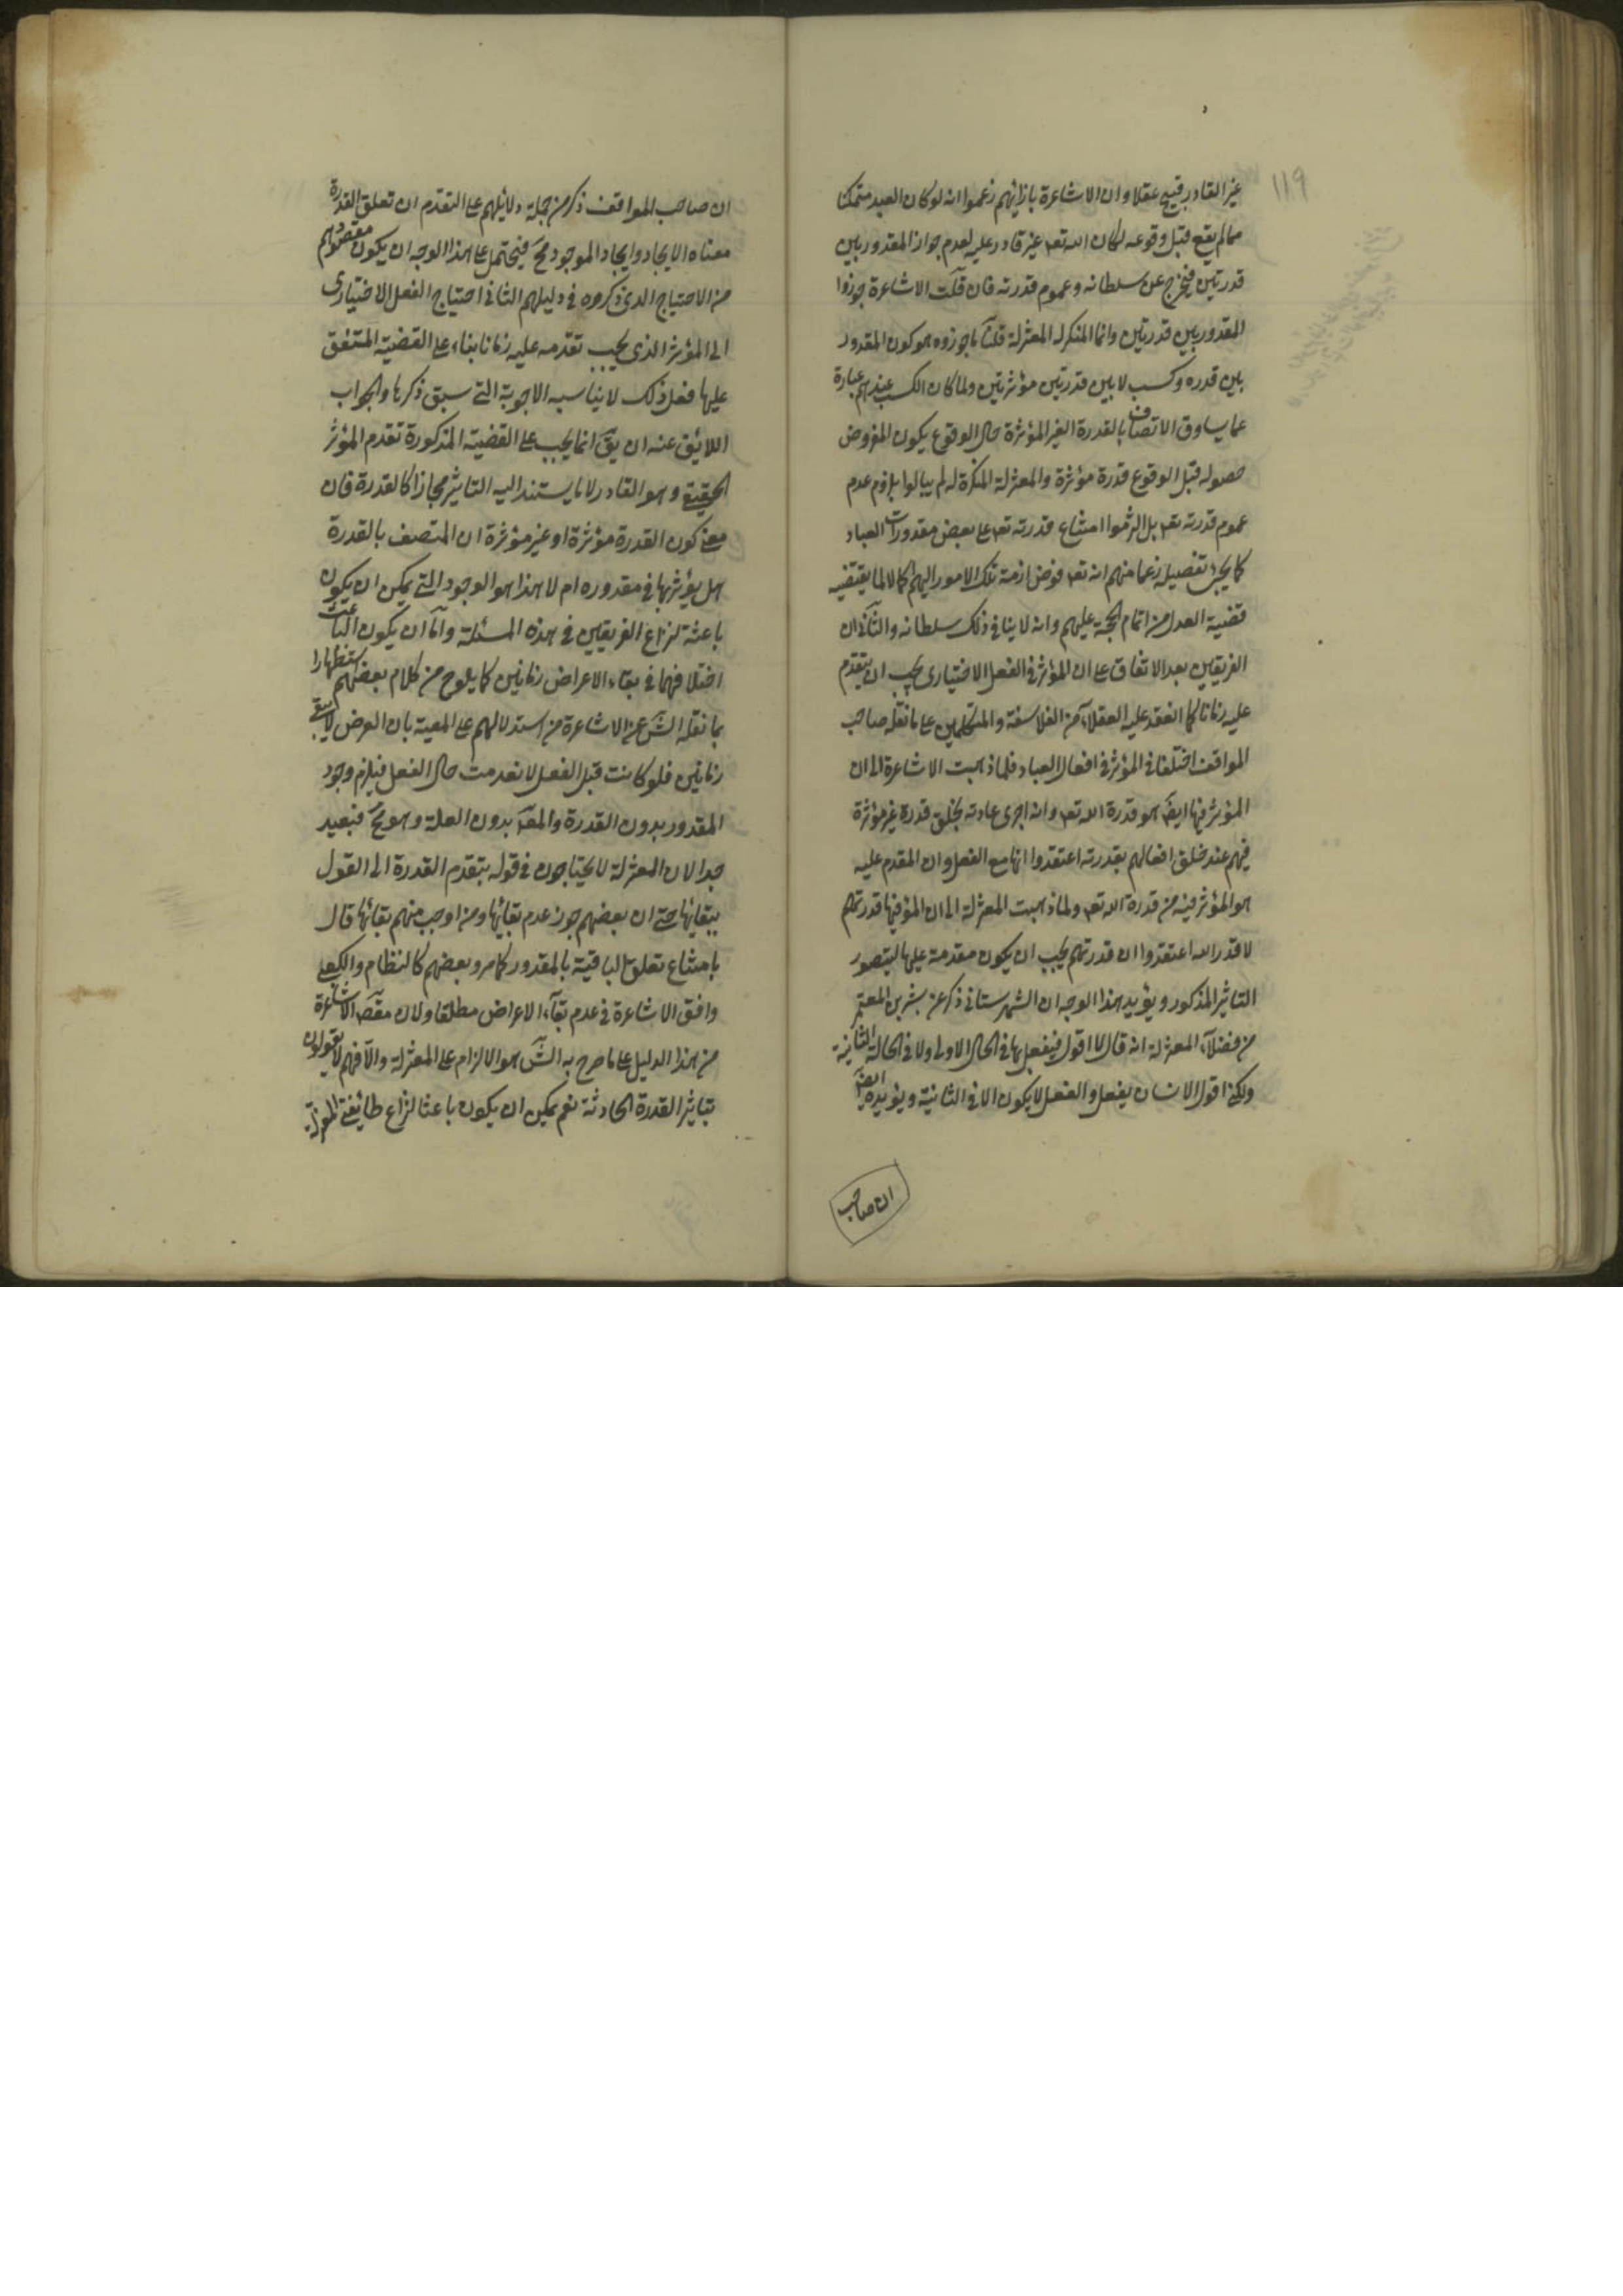 ١١٩
غير القادر قبيح عقلا وان الاشاعرة بازائهم زعموا انه لو كان العبد متمكنا
مما لم يقع قبل وقوعه لكان الله تعه غير قادر عليه لعدم جواز المقدور بين
قدرتين فيخرج عن سلطانه وعموم قدرته فان قلت الاشاعرة جوزوا
المقدور بين قدرتين وانما المنكر له المعتزلة قلنا ما جوزوه هو كون المقدور
بين قدره وكسب لا بين قدرتين مؤثرتين ولما كان الكسب عندهم عبارة
عما يساوق الاتصاف بالقدرة الغير المؤثرة حال الوقوع يكون المفروض
حصوله قبل الوقوع قدرة مؤثرة والمعتزلة المنكرة له لم يبالوا بلزوم عدم
عموم قدرته تعه بل الزموا امتناع قدرته تعه على بعض مقدورات العباد
كما يجئ تفصيله زعما منهم انه تعه فوض ازمة تلك الامور اليهم كمالا لما يقتضيه
قضية العدل من اتمام الحجة عليهم وانه لا ينافي ذلك سلطانه والثاني ان
الفريقين بعد الاتفاق على ان المؤثر في الفعل الاختياري يجب ان يتقدم
عليه زمانا كما انعقد عليه العقلاء من الفلاسفة والمتكلمين على ما نقله صاحب
المواقف اختلفا في المؤثر في افعال العباد فلما ذهبت الاشاعرة الى ان
المؤثر فيها ايضا هو قدرة الله تعه وانه اجرى عادته بخلق قدرة غير مؤثرة
فيهم عند خلق افعالهم بقدرته اعتقدوا انها مع الفعل وان المقدم عليه
هو المؤثر فيه من قدرة الله تعه ولما ذهبت المعتزلة الى ان المؤثر فيها قدرتهم
لا قدر الله اعتقدوا ان قدرتهم يجب ان يكون مقدمة عليها ليتصور
التاثير المذكور ويؤيد هذا الوجه ان الشهرستاني ذكر عن بشر بن المعتمر
من فضلاء المعتزلة انه قال لا اقول فيفعل بها في الحال الاولى ولا في الحالة الثانية
ولكني اقول الانسان يفعل والفعل لا يكون الا في الثانية ويؤيده ايضا
ان صاحب
ان صاحب المواقف ذكر من جملة دلائلهم على التقدم ان تعلق القدرة
معناه الايجاد وايجاد الموجود مح فيحتمل على هذا الوجه ان يكون مقصودهم
من الاحتياج الذي ذكروه في دليلهم الثاني احتياج الفعل الاختياري
الى المؤثر الذي يجب تقدمه عليه زمانا بناء على القضية المتفق
عليها فعل ذلك لا يناسبه الاجوبة التي سبق ذكرها والجواب
اللائق عنه ان يق انما يجب على القضية المذكورة تقدم المؤثر
الحقيقي وهو القادر لا ما يستند اليه التاثير مجازا كالقدرة فان
معنى كون القدرة مؤثرة او غير مؤثرة ان المتصف بالقدرة
هل يؤثر بها في مقدوره ام لا هذا هو الوجود التي يمكن ان يكون
باعثة لنزاع الفريقين في هذه المسئلة واما ان يكون الباعث
اختلافهما في بقاء الاعراض زمانين كما يلوح من كلام بعضهم استظهارا
بما نقله الش عن الاشاعرة من استدلالهم على المعية بان العرض لا يبقى
زمانين فلو كانت قبل الفعل لانعدمت حال الفعل فيلزم وجود
المقدور بدون القدرة والمعه بدون العلة وهو مح فبعيد
جدا لان المعتزلة لا يحتاجون في قوله بتقدم القدرة الى القول
ببقائها حتى ان بعضهم جوز عدم بقائها ومن اوجب منهم بقائها قال
بامتناع تعلق الباقية بالمقدور كما مر وبعضهم كالنظام والكعبي
وافق الاشاعرة في عدم بقاء الاعراض مطلقا ولان مقص الاشاعرة
من هذا الدليل على ما صرح به الش هو الالزام على المعتزلة والا فهم لا يقولون
بتاثير القدرة الحادثة نعم يمكن ان يكون باعثا لنزاع طائفة